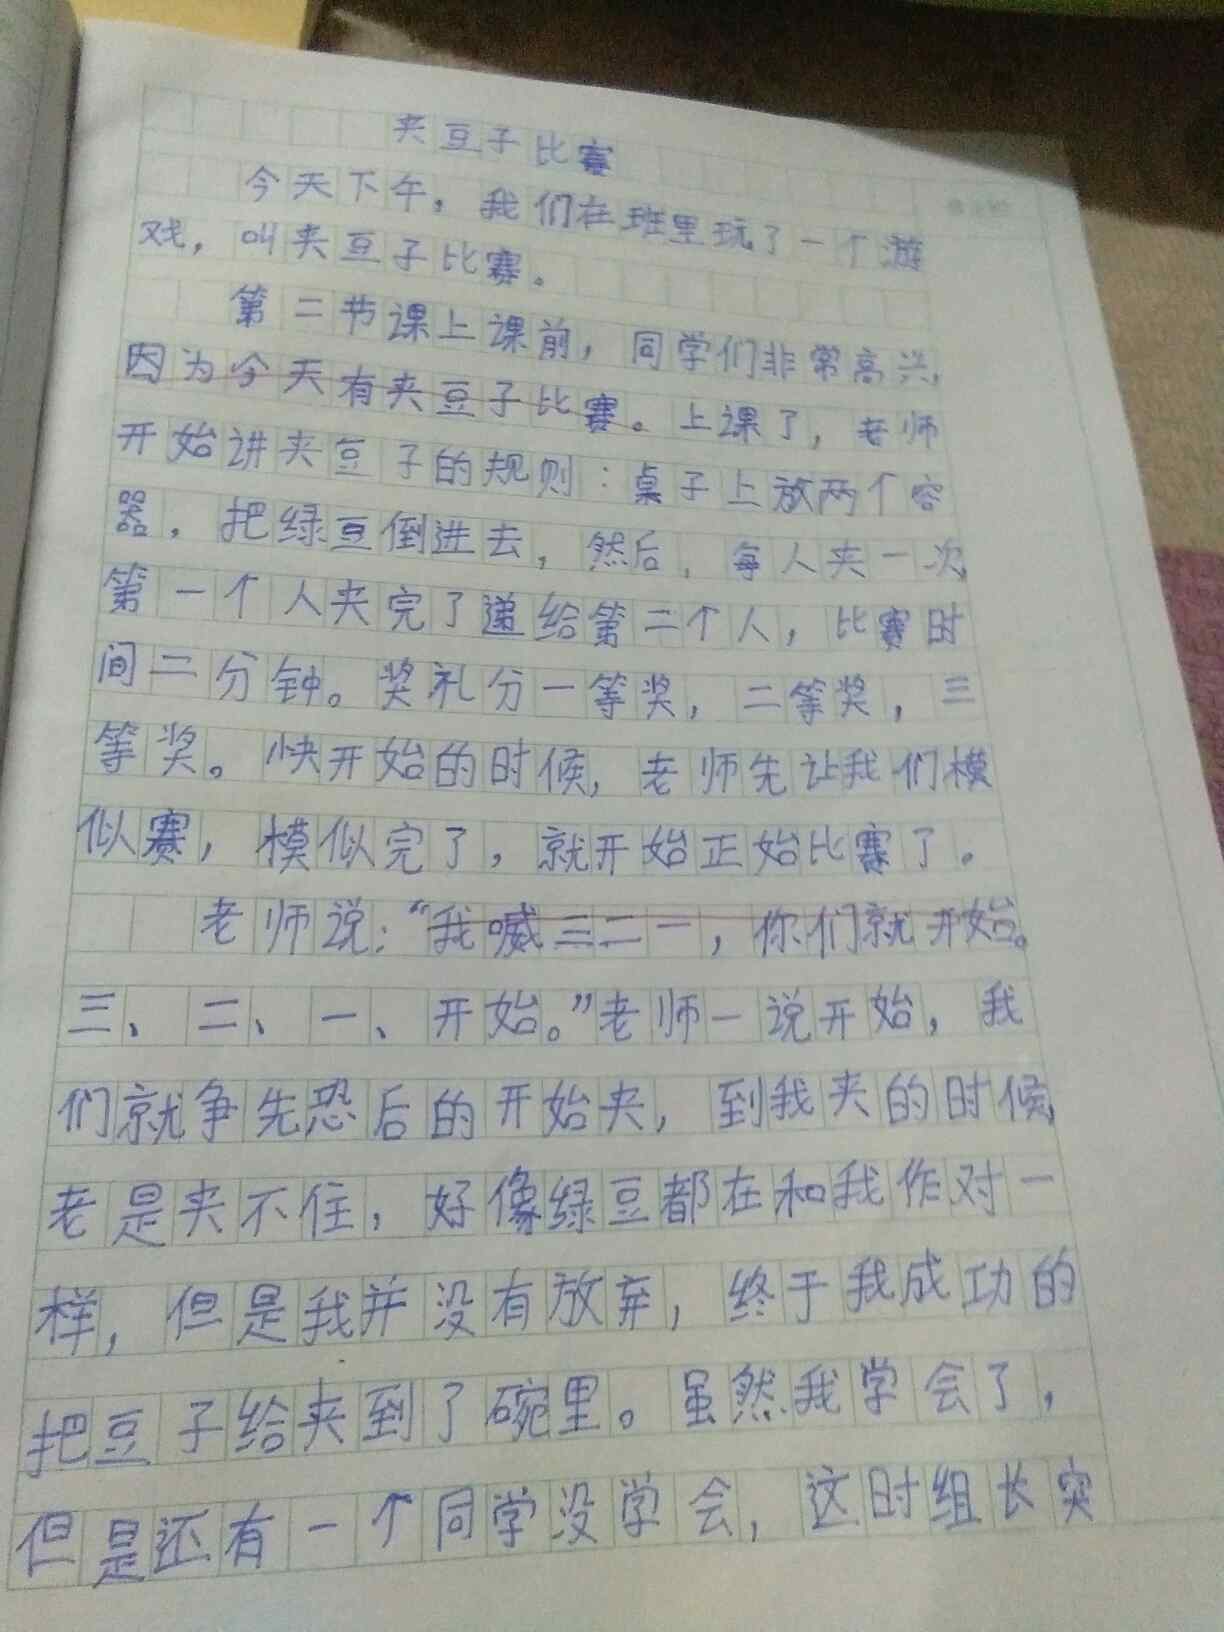 夹豆子比赛
今天下午，我们在班里玩了一个游
戏，叫夹豆子比赛。
第二节课上课前，同学们非常高兴，
因为今天有夹豆子比赛。上课了，老师
开始讲夹豆子的规则：桌子上放两个容
器，把绿豆倒进去，然后，每人夹一次，
第一个人夹完了递给第二个人，比赛时
间二分钟。奖礼分一等奖，二等奖，三
等奖。快开始的时候，老师先让我们模
似赛，模似完了，就开始正始比赛了。
老师说：“我喊三二一，你们就开始。
三、二、一、开始。”老师一说开始，我
们就争先恐后的开始夹，到我夹的时候，
老是夹不住，好像绿豆都在和我作对一
样，但是我并没有放弃，终于我成功的
把豆子给夹到了碗里。虽然我学会了，
但是还有一个同学没学会，这时组长突